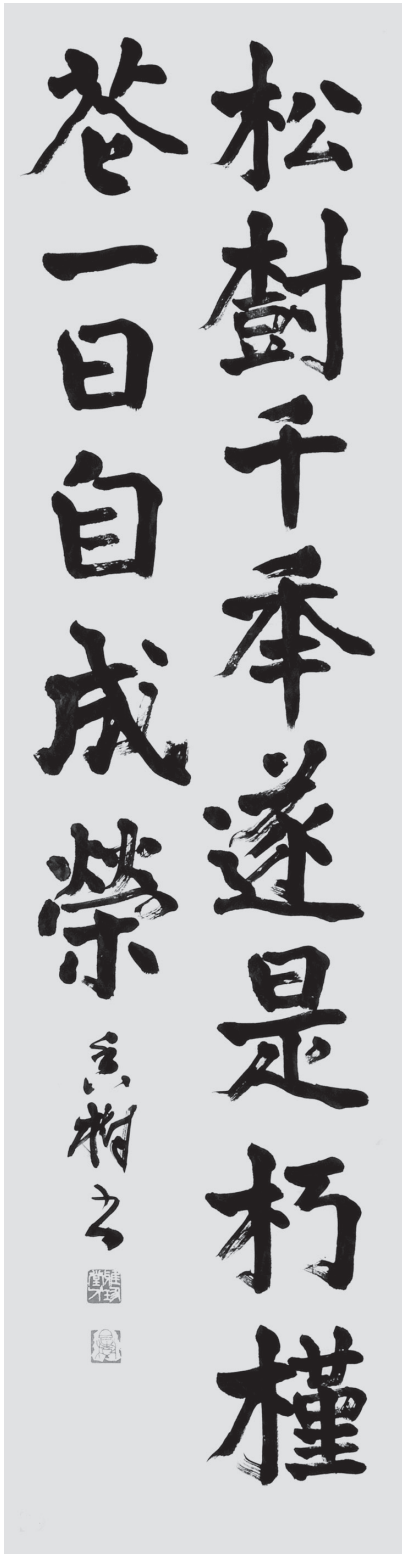 松樹千秊遂是朽槿
花一日自成榮
香樹書